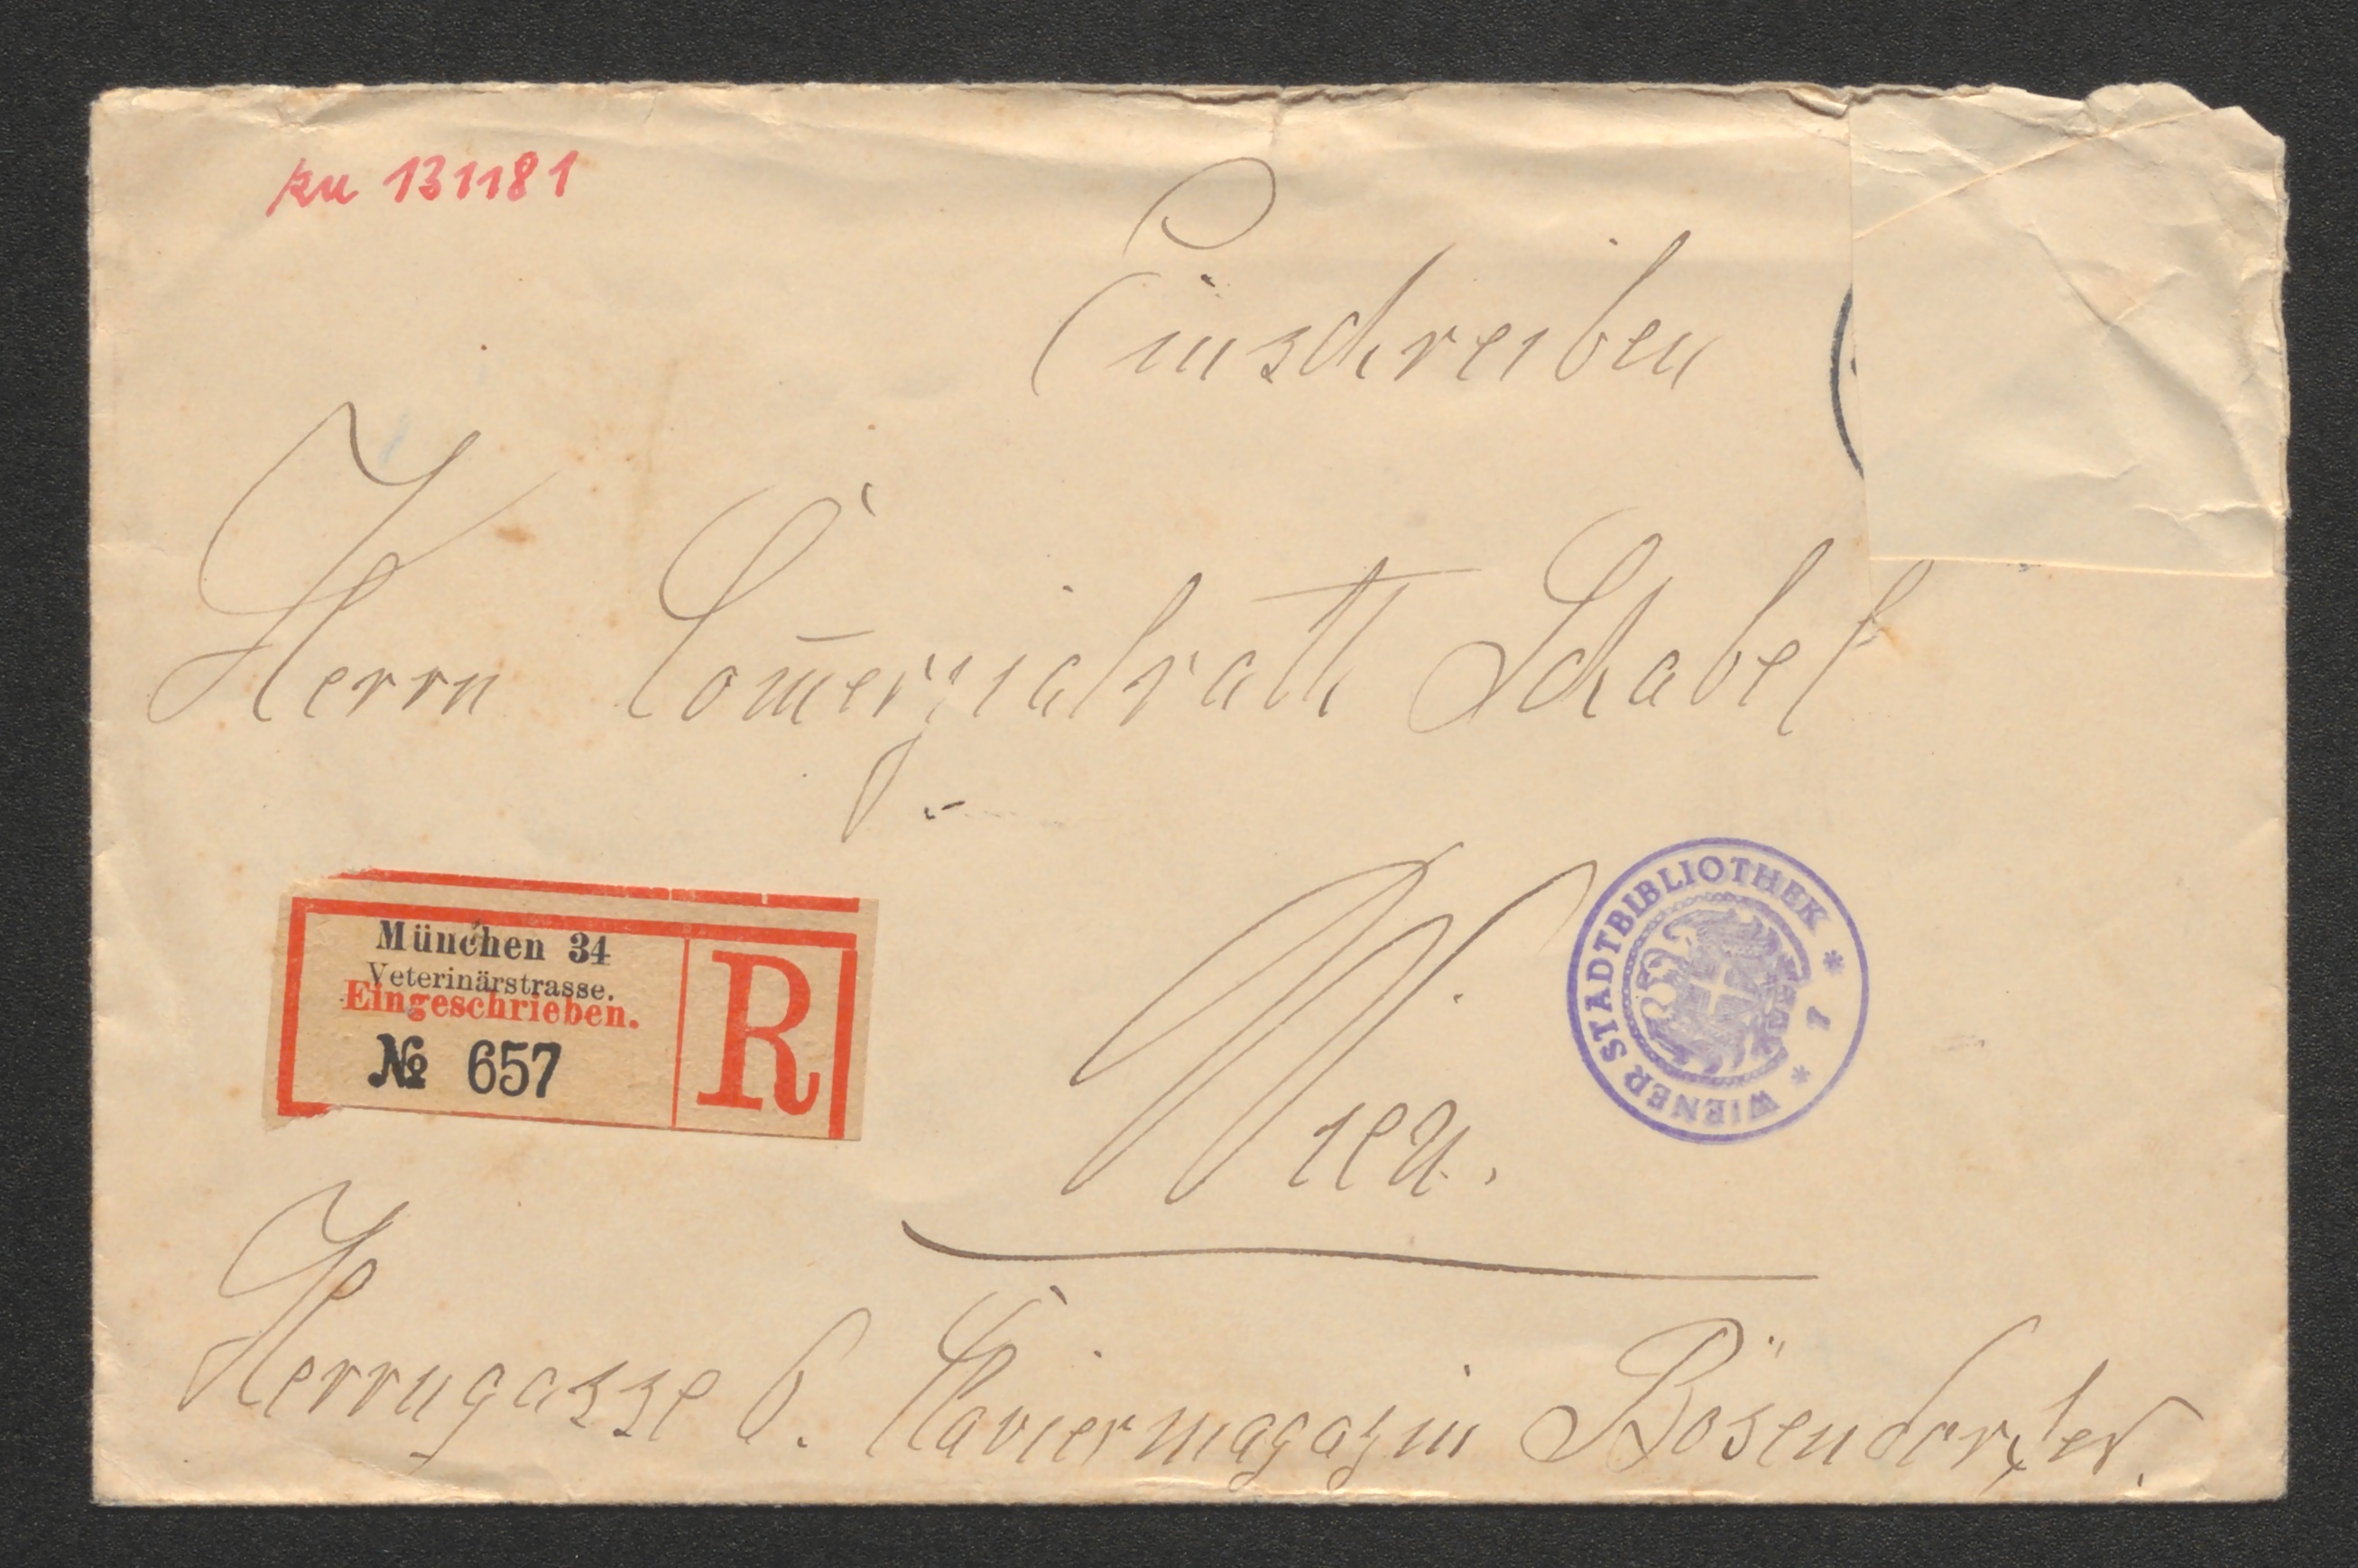 zu 131181
Einschreiben
Herrn Com̅erzialrath Schabel
Wien.
WIENER STADTBIBLIOTHEK * 7 *
München 34
Veterinärstrasse.
Eingeschrieben.
№ 657
R
Herrngasse 6. Klaviermagazin Bösendorfer.